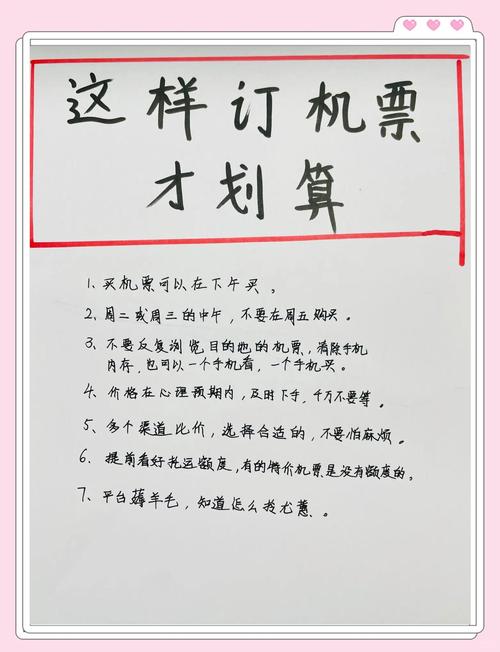 这样订机票
才划算
1、买机票可以在下午买。
2、周二或周三的中午，不要在周五购买。
3、不要反复浏览目的地的机票，清除手机
内存，也可以一个手机看，一个手机买。
4、价格在心理预期内，及时下手，千万不要等。
5、多个渠道比价，选择合适的，不要怕麻烦。
6、提前看好托运额度，有的特价机票是没有额度的。
7、平台薅羊毛，知道怎么找优惠。